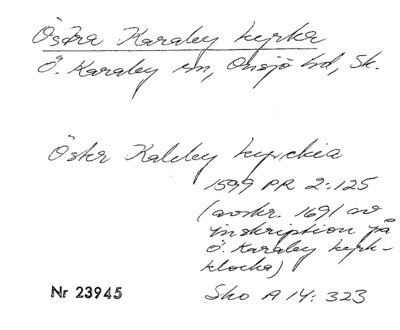 Östra Karaby kyrka
Ö. Karaby sn, Onsjö hd, Sk.
Östr Kalleby kyrckia
1599 PR 2:125
(avskr. 1691 av
inskription på
Ö. Karaby kyrk-
klocka)
Nr 23945
Sko A 14: 323